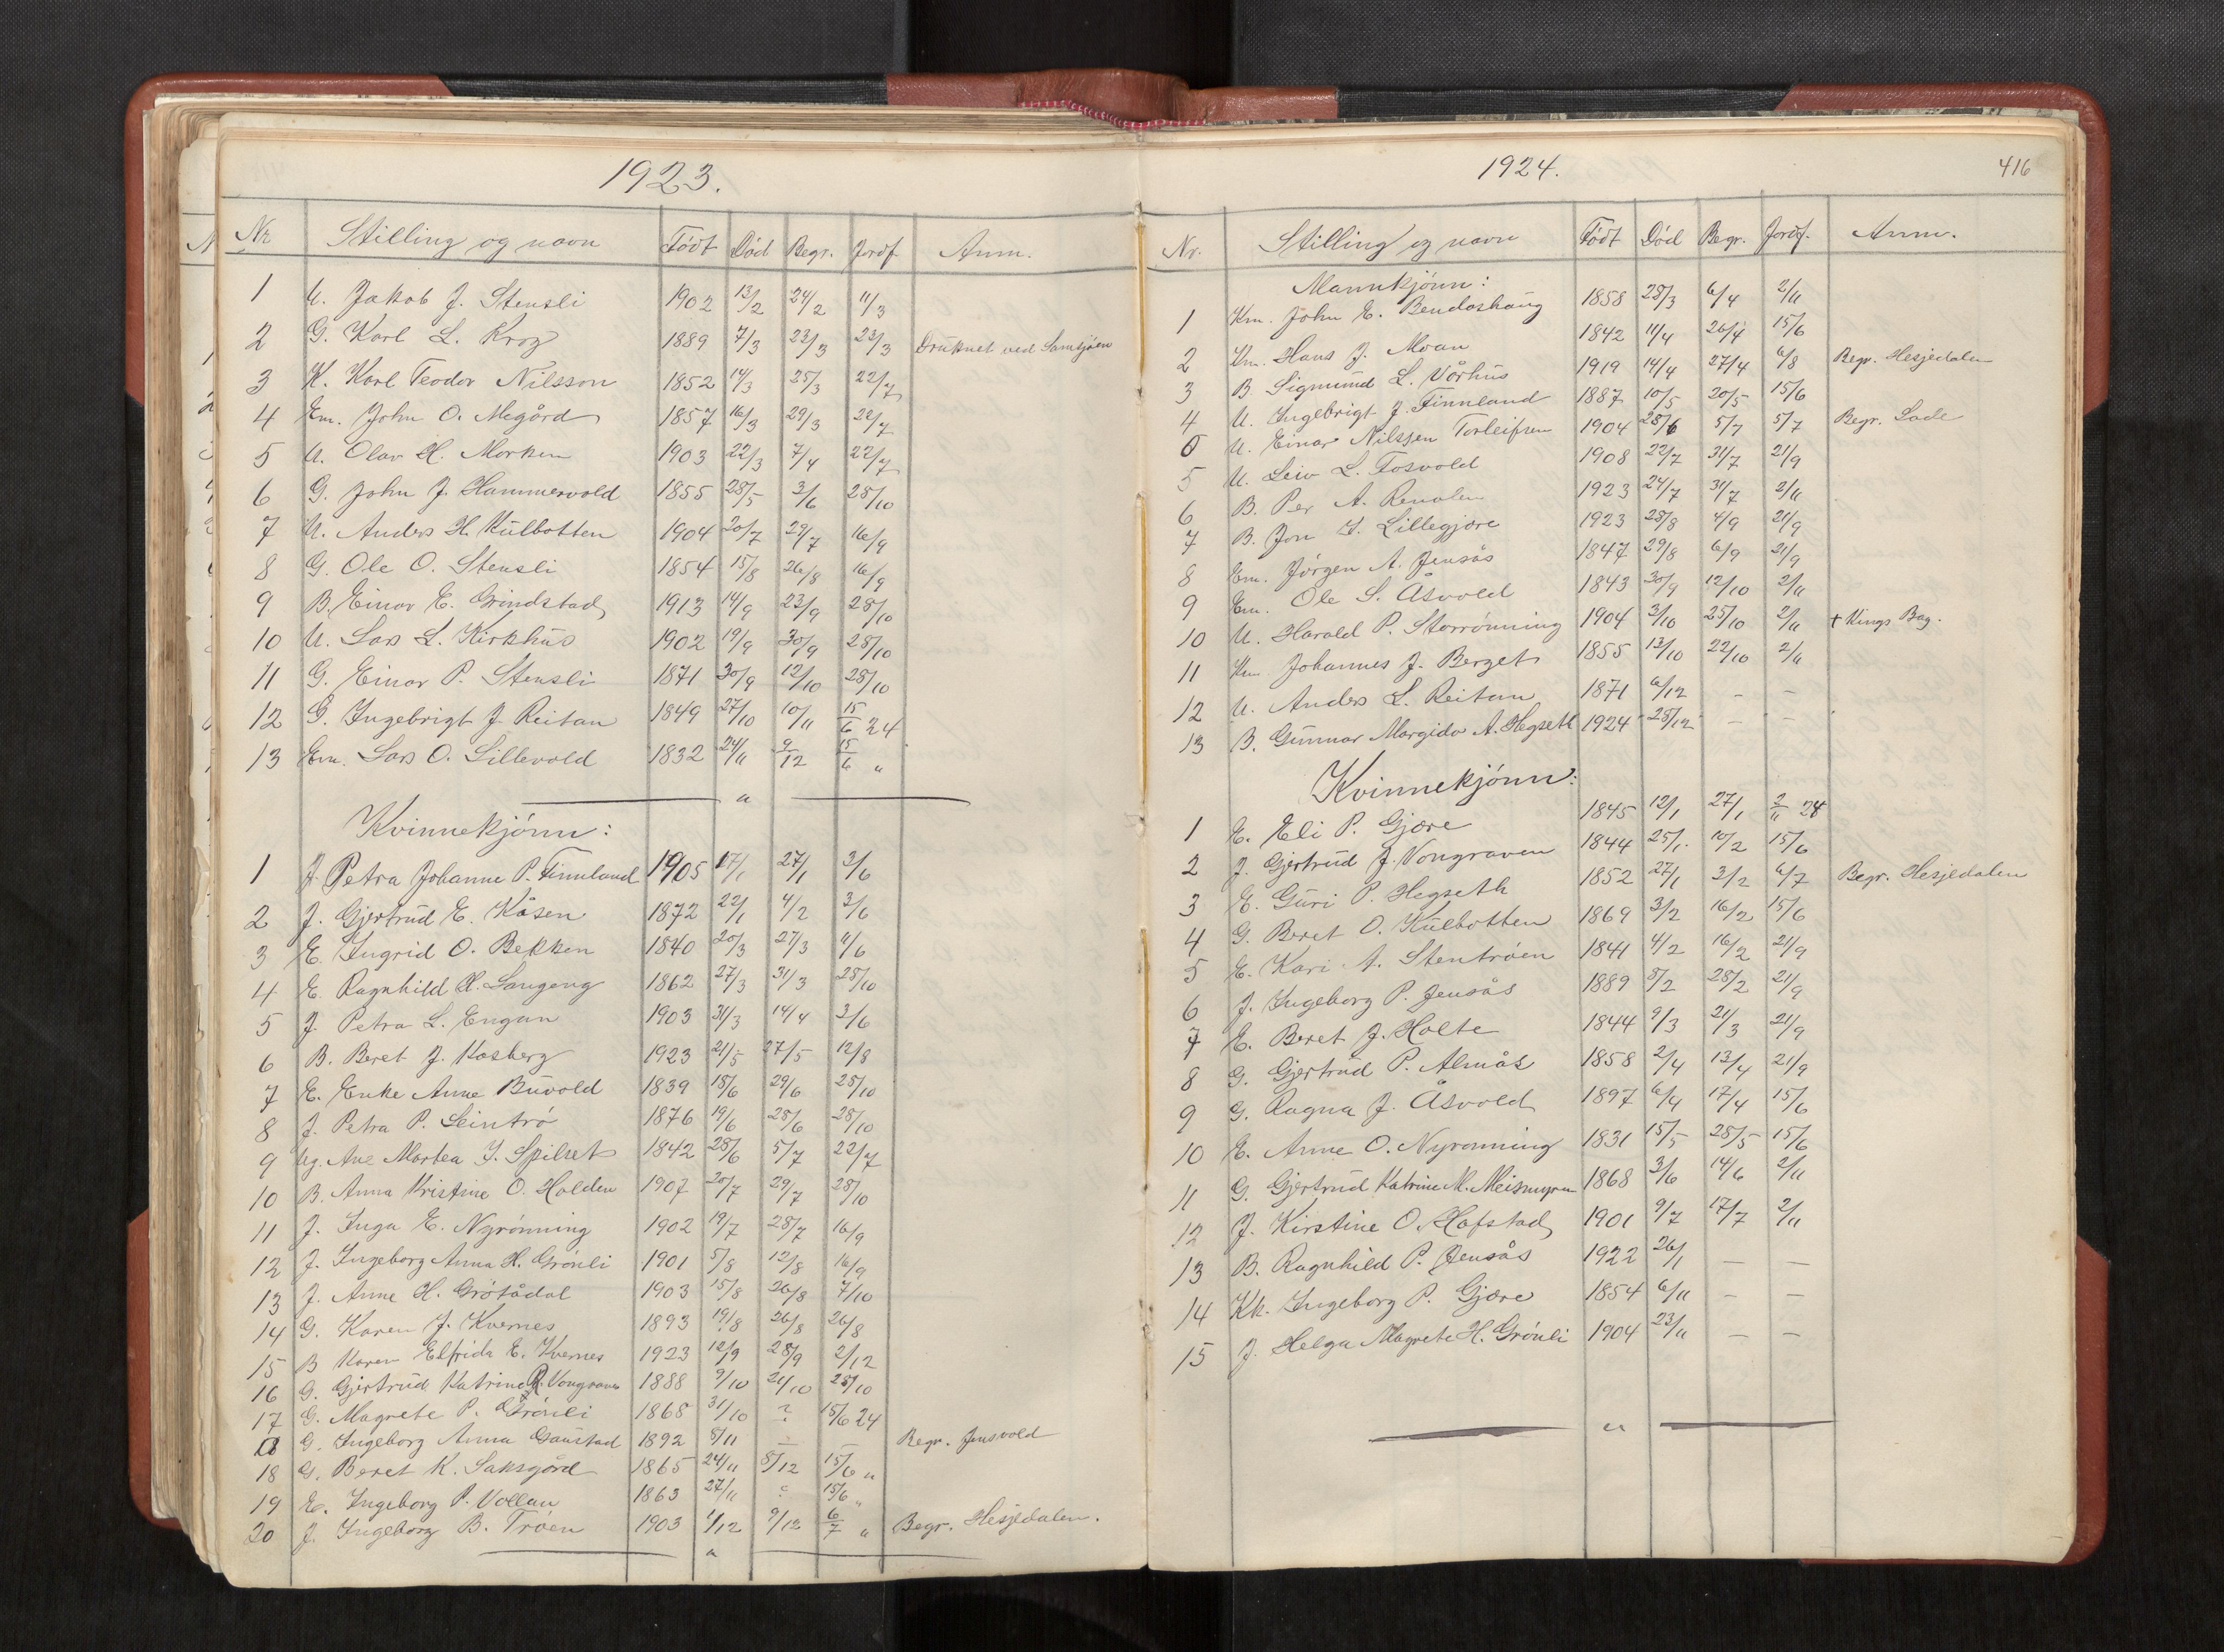 1923.
Nr Stilling og navn Født Død Begr. Jordf. Anm.
1 U. Jakob J. Stensli 1902 13/2 24/2 11/3
2 G. Karl L. Krog 1889 7/3 23/3 23/3 Druknet ved Samsjøen
3 K. Karl Teodor Nilsson 1852 14/3 25/3 22/7
4 Em. John O. Megård 1857 16/3 29/3 22/7
5 U. Olav H. Morken 1903 22/3 7/4 22/7
6 G. John J. Hammervold 1855 28/5 3/6 28/10
7 U. Anders H. Kulbotten 1904 20/7 29/7 16/9
8 G. Ole O. Stensli 1854 15/8 26/8 16/9
9 B. Einar E. Grindstad 1913 14/9 23/9 28/10
10 U. Lars L. Kirkhus 1902 19/9 30/9 28/10
11 G. Einar P. Stensli 1871 30/9 12/10 28/10
12 G. Ingebrigt J. Reitan 1849 27/10 10/11 15/6 24
13 Em. Lars O. Lillevold 1832 24/11 9/12 15/6 "
Kvinnekjønn:
1 J. Petra Johanne P. Finnland 1905 17/1 27/1 3/6
2 J. Gjertrud E. Kåsen 1872 22/1 4/2 3/6
3 E. Ingrid O. Bekken 1840 20/3 27/3 11/6
4 E. Ragnhild H. Langeng 1862 27/3 31/3 28/10
5 J. Petra L. Engan 1903 31/3 14/4 3/6
6 B. Beret J. Kosberg 1923 21/5 27/5 12/8
7 E. Enke Anne Buvold 1839 18/6 29/6 28/10
8 J. Petra P. Leintrø 1876 19/6 28/6 28/10
9 Ug. Ane Martea J. Spilset 1842 28/6 5/7 22/7
10 B. Anna Kristine O. Holden 1907 20/7 29/7 28/10
11 J. Inga E. Nyrønning 1902 19/7 28/7 16/9
12 J. Ingeborg Anna H. Grønli 1901 5/8 12/8 16/9
13 J. Anne H. Grøtådal 1903 15/8 26/8 7/10
14 G. Karen J. Kvernes 1893 19/8 26/8 26/8
15 B Karen Elfrida E. Kvernes 1923 12/9 28/9 2/12
16 G. Gjertrud Katrine R. Vongraven 1888 9/10 21/10 28/10
17 G. Magrete P. Grønli 1868 31/10 ? 15/6 24
0 G. Ingeborg Anna Gaustad 1892 8/11 – – Begr. Jensvold
18 G. Beret K. Saksgård 1865 24/11 8/12 15/6 "
19 E. Ingeborg P. Vollan 1863 27/11 ? 15/6 "
20 J. Ingeborg B. Trøen 1903 1/12 9/12 6/7 " Begr. Hesjedalen.
1924.
416
Nr. Stilling og navn Født Død Begr. Jordf. Anm.
Mannkjønn:
1 Km. John E. Bendoshaug 1858 28/3 6/4 2/11
2 Km. Hans J. Moan 1842 11/4 20/4 15/6
3 B. Sigmund L. Vårhus 1919 14/4 27/4 6/8 Begr. Hesjedalen
4 U. Ingebrigt J. Finnland 1887 10/5 20/5 15/6
0 U. Einar Nilssen Torleifsen 1904 28/6 5/7 5/7 Begr. Lade
5 U. Leiv L. Fosvold 1908 22/7 31/7 21/9
6 B. Per A. Renolen 1923 24/7 31/7 2/11
7 B. Jon J. Lillegjære 1923 28/8 4/9 21/9
8 Em. Jørgen A. Jensås 1847 29/8 6/9 21/9
9 Em. Ole S. Åsvold 1843 30/9 12/10 2/11
10 U. Harald P. Storrønning 1904 3/10 25/10 2/11 + Kings Bay.
11 Km Johannes J. Berget 1855 13/10 22/10 2/11
12 U. Anders L. Reitan 1871 6/12 – –
13 B. Gunnar Margido A. Hegseth 1924 28/12 – –
Kvinnekjønn:
1 E. Eli P. Gjære 1845 12/1 27/1 2/11 24
2 J. Gjertrud J. Vongraven 1844 25/1 10/2 15/6
3 E. Guri P. Hegseth 1852 27/1 3/2 6/7 Begr. Hesjedalen
4 G. Beret O. Kulbotten 1869 3/2 16/2 15/6
5 E. Kari A. Stentrøen 1841 4/2 16/2 21/9
6 J. Ingeborg P. Jensås 1889 8/2 28/2 21/9
7 E. Beret J. Holte 1844 9/3 21/3 21/9
8 G. Gjertrud P. Almås 1858 2/4 13/4 21/9
9 G. Ragna J. Åsvold 1897 6/4 17/4 15/6
10 E. Anne O. Nyrønning 1831 15/5 28/5 15/6
11 G. Gjertrud Katrine M. 1868 3/6 14/6 2/11
12 J. Kirstine O. Hofstad 1901 9/7 17/7 2/11
13 B. Ragnhild P. Jensås 1922 26/1 – –
14 Kk. Ingeborg P. Gjære 1854 6/11 – –
15 J. Helga Magrete H. Grønli 1904 23/11 – –